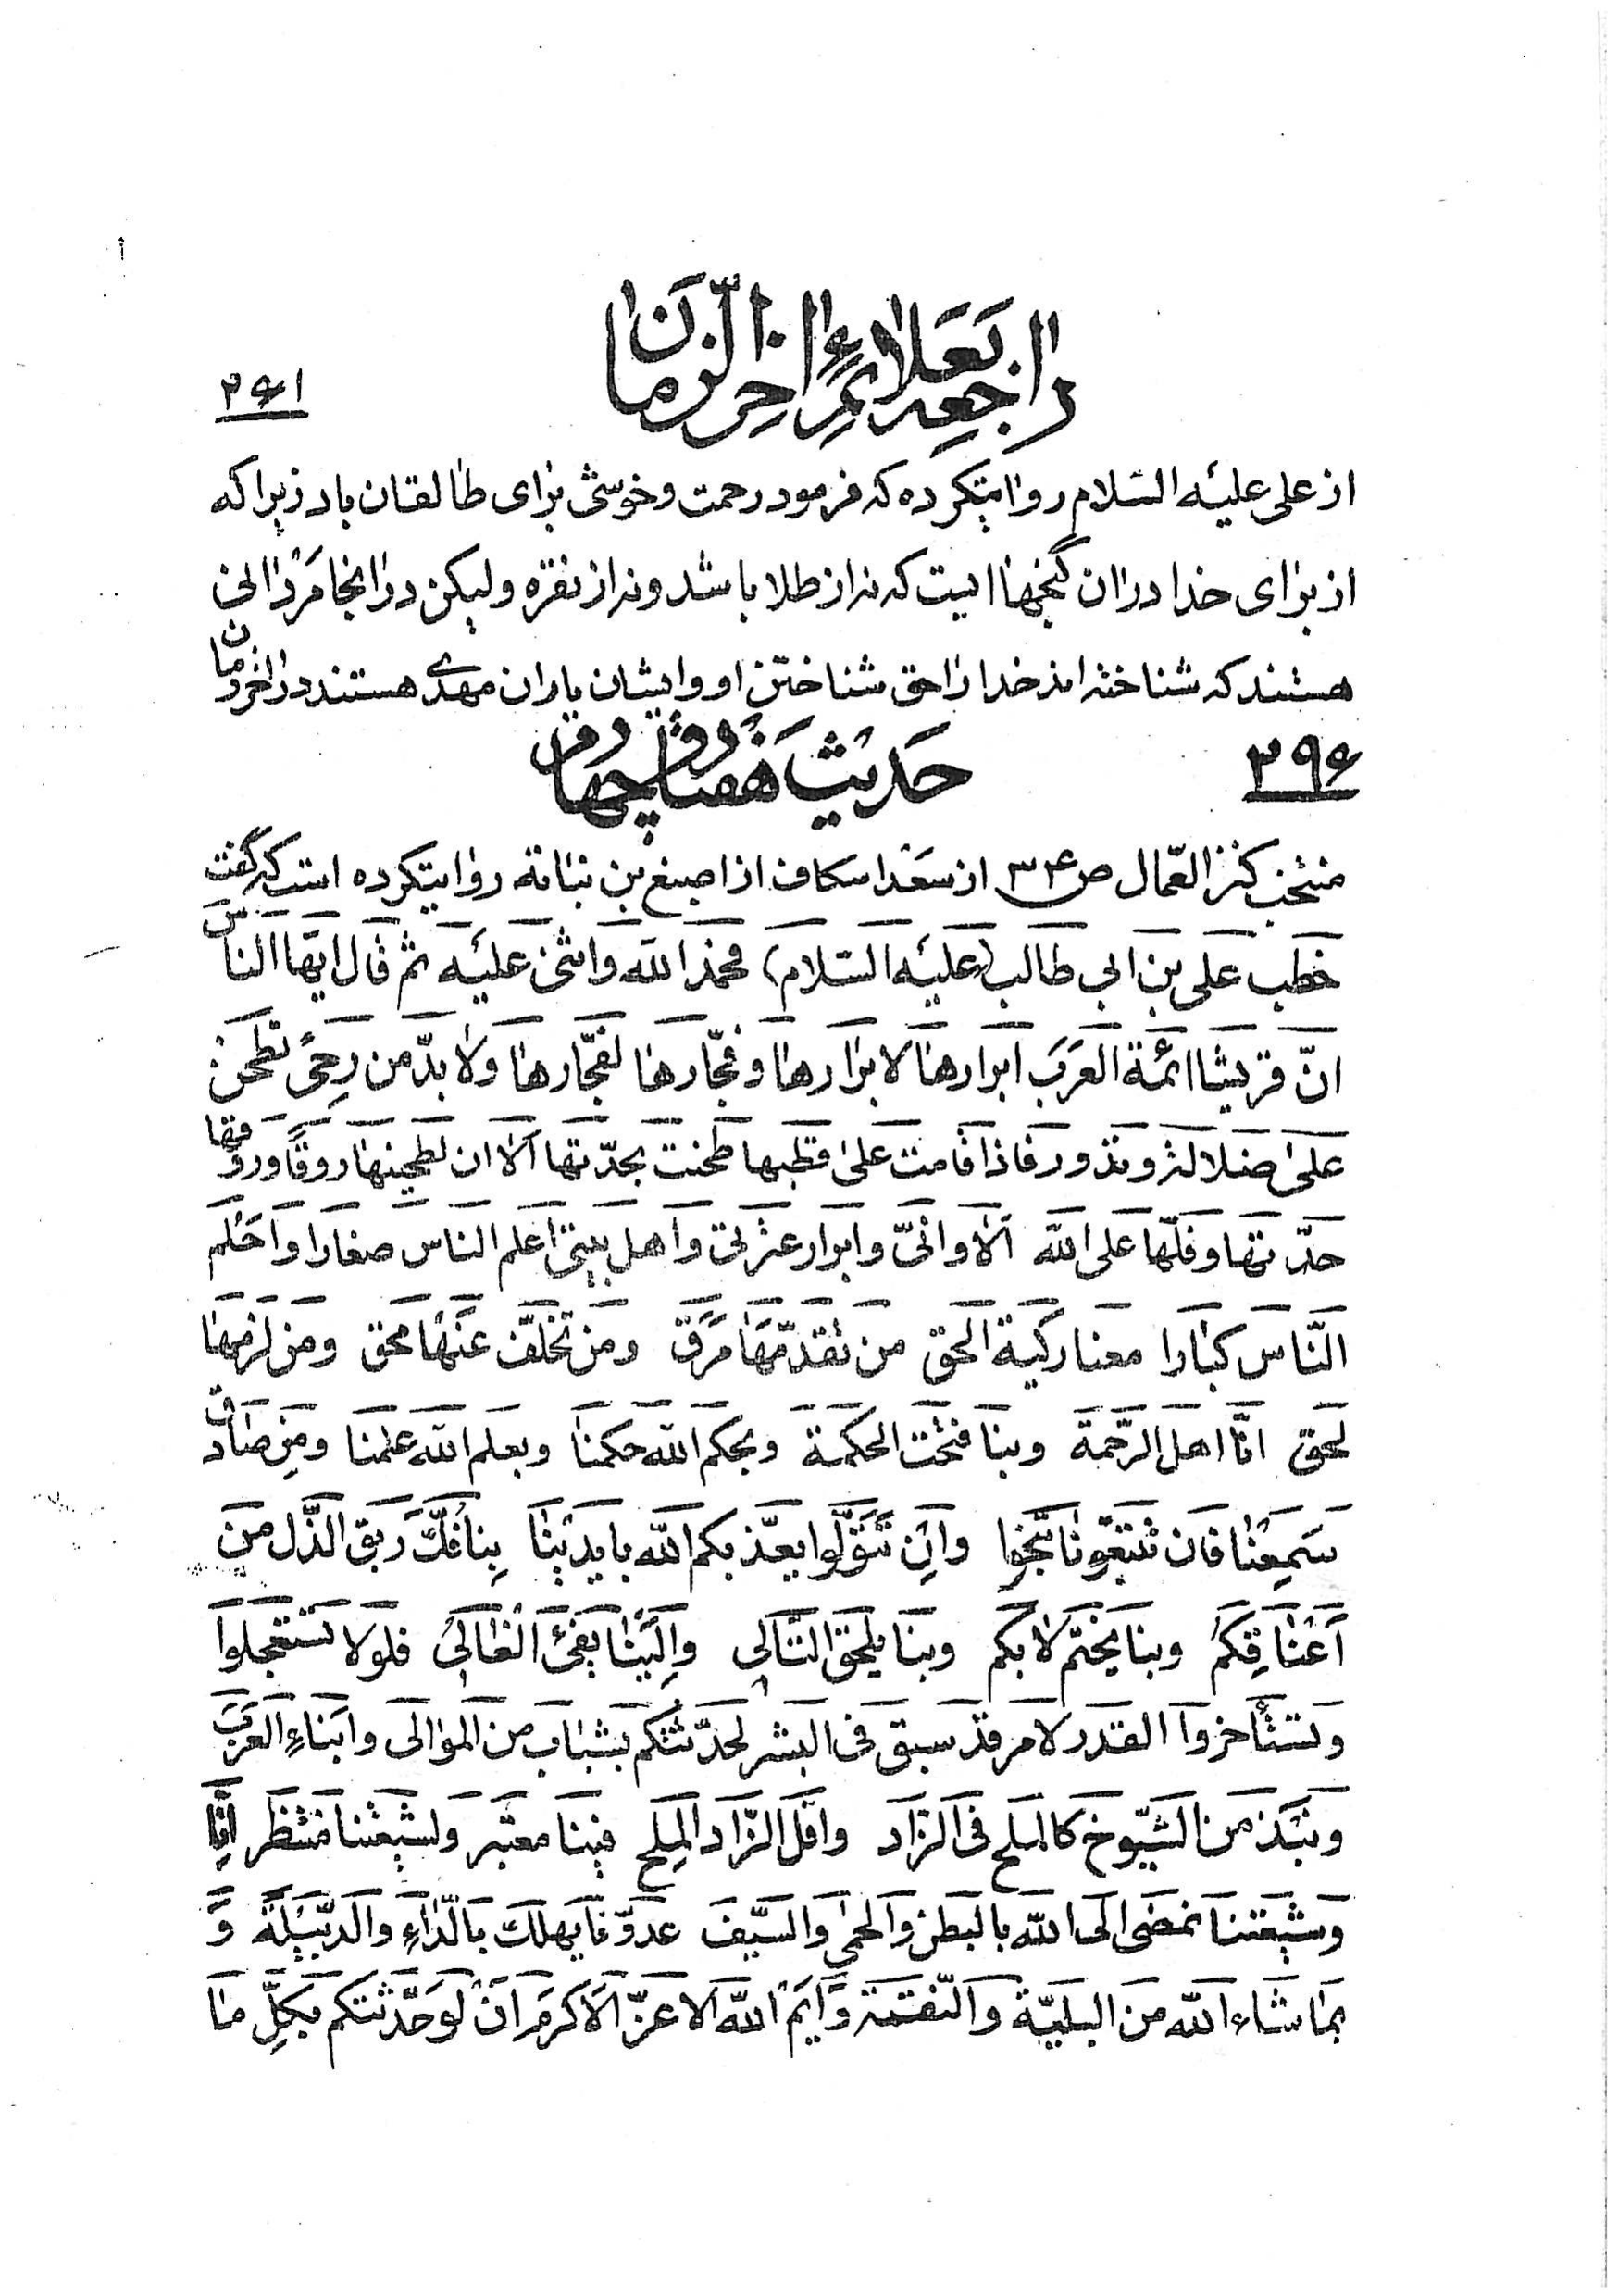 راجع بعلائم اخر الزمان
۲۶۱
از علی علیه السّلام روایتکرده که فرمود رحمت و خوشی برای طالقان باد زیرا که
از برای خدا در ان گنجهاایست که نه از طلا باشد و نه از نقره ولیکن در انجا مردانی
هستند که شناخته اند خدا را حق شناختن او و ایشان یاران مهدی هستند در اخر زمان
۳۹۶
حدیث هفتاد و چهارم
منتخب کنز العمّال ص ۳۴ از سعد اسکاف از اصبغ بن نباتة روایتکرده است که گفت
خطب علی بن ابی طالب (علیه السّلام) فحمد اللّه واثنی علیه ثم قال ایّها الناس
انّ قریشا ائمّة العَرَب ابرارها لابرارها وفجّارها لفجّارها ولا بدّ من رحیً تطحن
علی ضلالة وتدور فاذا قامت علی قطبها طحنت بحدّتها اَلا ان لطحینها روقاً وروقها
حدّتها وفلّها علی اللّه اَلا وانّی وابرار عترتی واهل بیتی اعلم الناس صغارا واحلم
النّاس کبارا معنا رایة الحق من تقدّمها مرق ومن تخلّف عنها محق ومن لزمها
لحق انّا اهل الرّحمة وبنا فتحت الحکمة وبحکم اللّه حکمنا وبعلم اللّه علمنا ومِن صادق
سَمِعْنا فان تتبعونا تنجوا واِن تتولّوا یعذّبکم اللّه بایدینا بِنا فُکَّ رَبق الذّل من
اَعْناقِکُم وبنا یختم لا بکم وبنا یلحق التالی واِلَیْنا یفیئ الغالی فلولا تستعجلوا
وتستأخروا القدر لامر قد سبق فی البشر لحدّثتکم بشباب من الموالی وابناءِ العرب
ونبذ من الشّیوخ کالملح فی الزاد واقل الزّاد الملح فینا معتبر ولشیعتنا منتظر اِنّا
وشیعتنا نمضی الی اللّه بالبطن والحمی والسّیف عدوّنا یهلک بالدّاءِ والدّبیلة و
بما شاء اللّه من البلیّة والنّقمة واَیم اللّه الاعزّ الاکرم اَن لو حدّثتکم بکلِّ ما